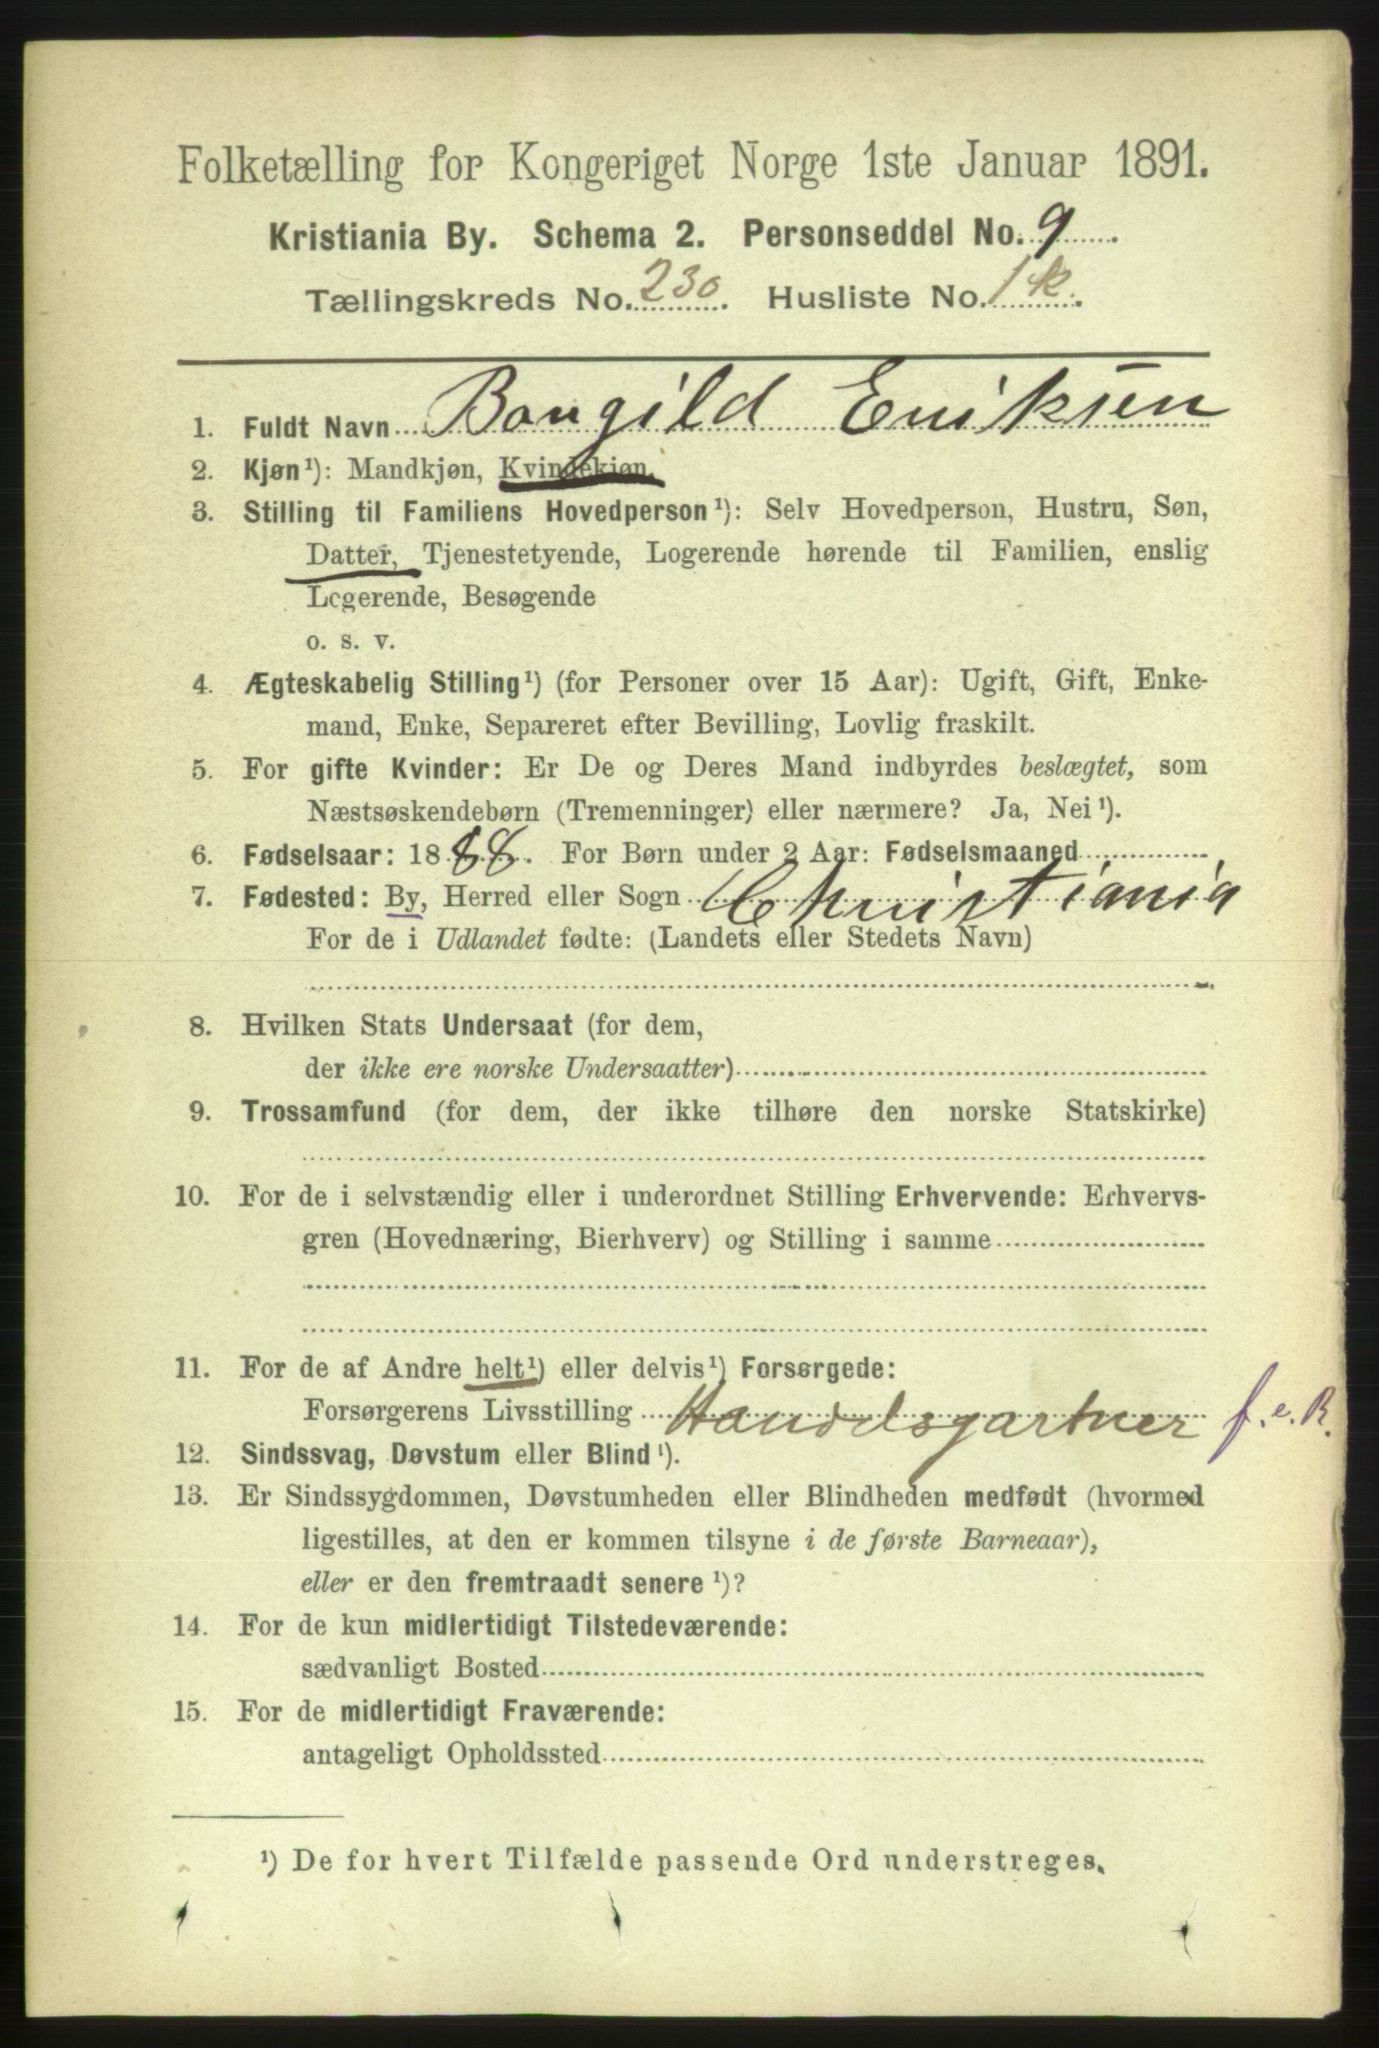 Folketælling for Kongeriget Norge 1ste Januar 1891.
Kristiania By. Schema 2. Personseddel No. 9.
Tællingskreds No. 230. Husliste No. 1 k.
1. Fuldt Navn Borgild Eriksen
2. Kjøn¹): Mandkjøn, Kvindekjøn.
3. Stilling til Familiens Hovedperson¹): Selv Hovedperson, Hustru, Søn,
Datter, Tjenestetyende, Logerende hørende til Familien, enslig
Logerende, Besøgende
o. s. v.
4. Ægteskabelig Stilling¹) (for Personer over 15 Aar): Ugift, Gift, Enke-
mand, Enke, Separeret efter Bevilling, Lovlig fraskilt.
5. For gifte Kvinder: Er De og Deres Mand indbyrdes beslægtet, som
Næstsøskendebørn (Tremenninger) eller nærmere? Ja, Nei¹).
6. Fødselsaar: 1888. For Børn under 2 Aar: Fødselsmaaned
7. Fødested: By, Herred eller Sogn Christiania
For de i Udlandet fødte: (Landets eller Stedets Navn)
8. Hvilken Stats Undersaat (for dem,
der ikke ere norske Undersaatter)
9. Trossamfund (for dem, der ikke tilhøre den norske Statskirke)
10. For de i selvstændig eller i underordnet Stilling Erhvervende: Erhvervs-
gren (Hovednæring, Bierhverv) og Stilling i samme
11. For de af Andre helt¹) eller delvis¹) Forsørgede:
Forsørgerens Livsstilling Handdsgartner f. e. R.
12. Sindssvag, Døvstum eller Blind¹).
13. Er Sindssygdommen, Døvstumheden eller Blindheden medfødt (hvormed
ligestilles, at den er kommen tilsyne i de første Barneaar),
eller er den fremtraadt senere¹)?
14. For de kun midlertidigt Tilstedeværende:
sædvanligt Bosted
15. For de midlertidigt Fraværende:
antageligt Opholdssted
¹) De for hvert Tilfælde passende Ord understreges.